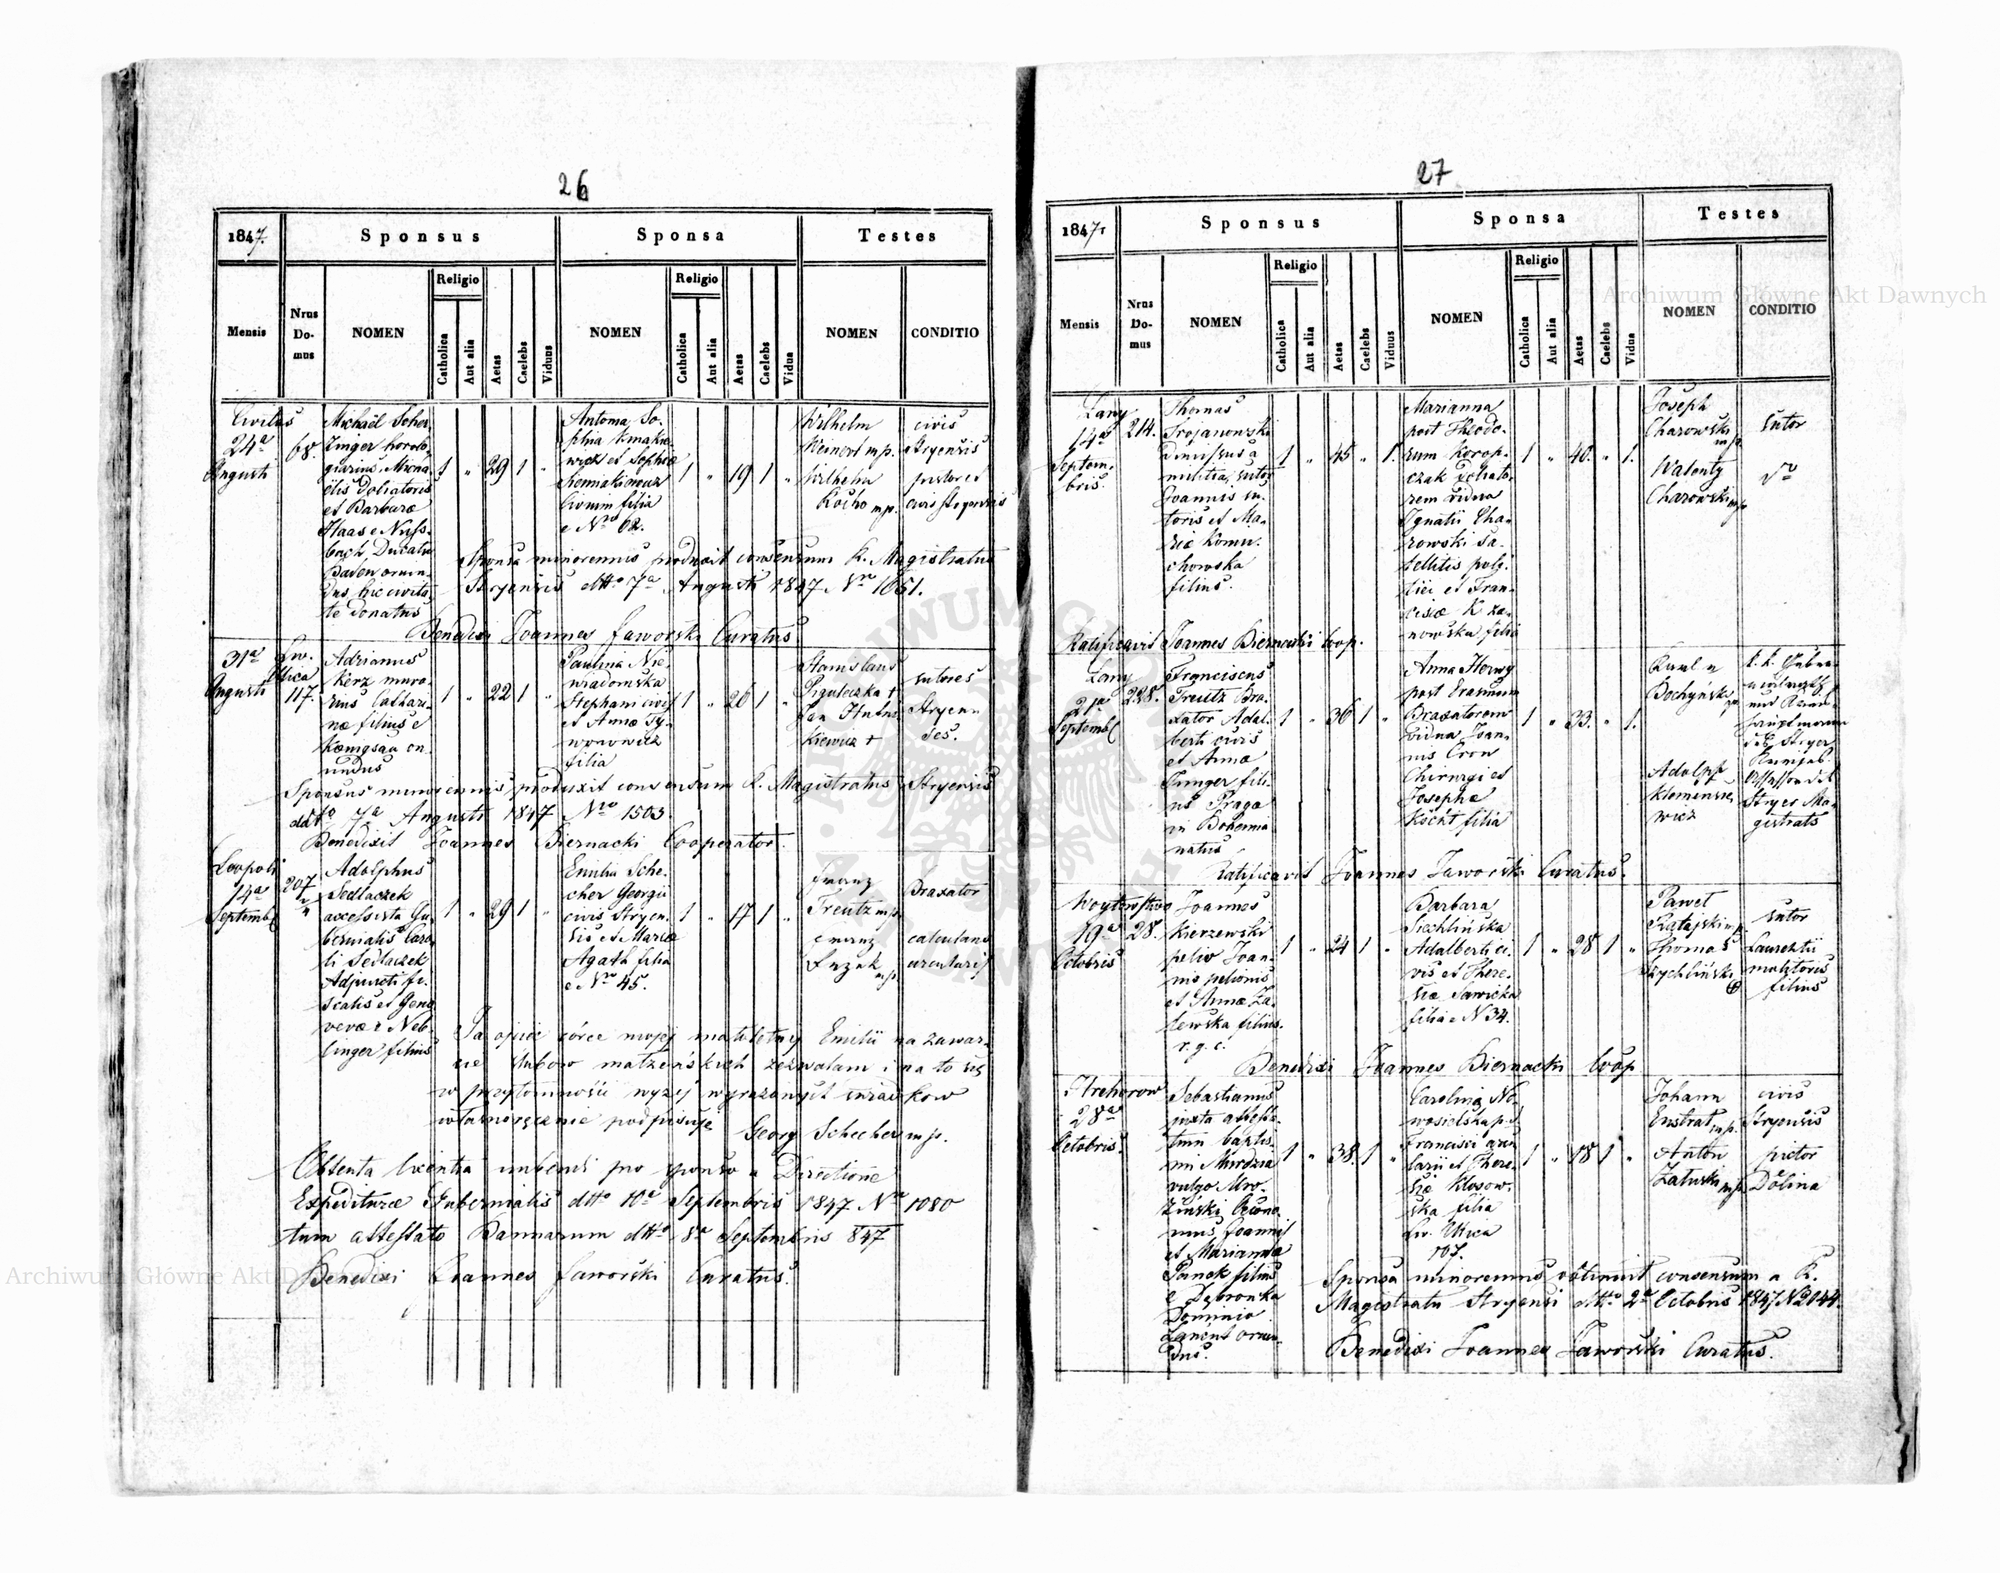 26
1847. Sponsus Sponsa Testes
Mensis Nrus Domus NOMEN Religio Catholica Aut alia Aetas Caelebs Viduus NOMEN Religio Catholica Aut alia Aetas Caelebs Vidua NOMEN CONDITIO
Civitas
24ª
Augusti
68.
Michaël Scher
zinger horolo-
giarius Micha
ëlis Doliatoris
et Barbara
Haas e Nuss-
bach Ducatu
Baden oriun-
dus hic civita-
te donatus
1 " 29 1 "
Antonia So-
phia
et Sophiæ
civium filia
e Nro 62.
1 " 19 1 "
Wilhelm
Weinert mp.
Wilhelm
Kocho mp.
civis
Stryensis
pistor et
civis Stryensis
Sponsa minorennis produxit consensum K. Magistratus
Stryensis ddto 7ª Augusti 1847 Nro 1051.
Benedixi Joannes Jaworski Curatus.
31ª
Augusti
Lw.
Ulica
117.
Adrianus
Kerz mura-
rius Cathari-
næ filius e
ori
undus
1 " 22 1 "
Paulina Nie
wiadomska
Stephani civis
et Annæ Ty-
nowicz
filia
1 " 26 1 "
Stanislaus
+
Jan
kiewicz +
sutores
Stryen-
ses.
Sponsus minorennis produxit consensum K. Magistratus Stryensis
ddto 7ª Augusti 1847 Nro 1503
Benedixit Joannes Biernacki Cooperator.
Leopoli
14ª
Septemb
207
Adolphus
Sedlaczek
accessista Gu-
bernialis Caro-
li Sedlaczek
Adjuncti fi-
scalis et Geno
vevæ Neb-
linger filius
1 " 29 1 "
Emilia Sche-
cher Georgii
civis Stryen-
sis et Mariæ
Agath filia
e Nro 45.
1 " 17 1 "
Franz
Treutz mp.
Franz
mp.
Braxator
Ja ojciec córce mojej małoletny Emilii na zawar-
cie ślubów małżeńskich zezwalam i na to się
w przytomności wyżej wyrażonych świadków
własnoręcznie podpisuję
Georg Schecher mp.
Obtenta licentia nubendi pro sponso a Directione
Expeditura Gubernialis ddto 10ª Septembris 1847 Nro 1080
tum attestato Bannorum ddto 8ª Septembris 847
Benedixi Joannes Jaworski Curatus.
27
1847 Sponsus Sponsa Testes
Mensis Nrus Domus NOMEN Religio Catholica Aut alia Aetas Caelebs Viduus NOMEN Religio Catholica Aut alia Aetas Caelebs Vidua NOMEN CONDITIO
Łany
14ª
Septem-
bris.
214.
Thomas
Trojanowski
dimissus a
militia, sutor
Joannis su-
toris et Ma-
riæ Komu-
chowska
filius.
1 " 45 " 1.
Marianna
post Theodo-
rum Korop-
czak doliato-
rem vidua
Ignatii Cha-
rowski Sa-
tellitis poli-
tici et Fran-
ciscæ
nowska filia
1 " 40. " 1.
Joseph
Charowski
mp.
Walenty
Charowski mp
sutor
dto
Ratificavit Joannes Biernacki Coop.
Łany
21ª
Septemb
228.
Franciscus
Treutz Bra-
xator Adal-
berti civis
et Anna
Junger fili-
us Praga
in Bohemia
natus
1 " 36 1 "
Anna Herwy
post Erasmum
Braxatorem
vidua Joan-
nis Cron
Chirurgi et
Josepha
Kocht filia
1 " 33. " 1.
Karl v
Bochynski
Adolph
Klemensie-
wicz
k. k.
des Stryer
Assessor del
Stryer Ma-
gistrats
Ratificavit Joannes Jaworski Curatus.
Woytowstwo
19ª
Octobris
28.
Joannes
Kierzewski
pelio Joan-
nis pelionis
et Annæ Za-
lewska filius.
r. g. c.
1 " 24 1 "
Barbara
Siechlińska
Adalberti ci-
vis et There-
siæ Sawicka
filia e N 34.
1 " 28 1 "
Paweł
Ratajski mp
Thomas
Rychliński
sutor
Laurentii
molitoris
filius
Benedixi Joannes Biernacki Coop
Strehorow
28ª
Octobris.
Sebastianus
juxta attesta-
tum baptis-
mi Murdzia
vulgo Mro-
ziński Œcono-
mus Joannis
et Marianna
Panek filius
e Dąbrowka
Dominio
Łancut oriun-
dus.
1 " 38. 1 "
Carolina No-
wosielska p. d.
Francisci
et There-
siæ Kłosow-
ska filia
Lw. Ulica
107.
1 " 18 1 "
Johann
Enstrat mp.
Anton
Załuski mp
civis
Stryensis
pictor
Dolina
Sponsa minorennis obtinuit consensum a K.
Magistratu Stryensi ddto 2ª Octobris 1847 N 2044.
Benedixi Joannes Jaworski Curatus.
Archiwum Główne Akt Dawnych
Archiwum Główne Akt Dawnych